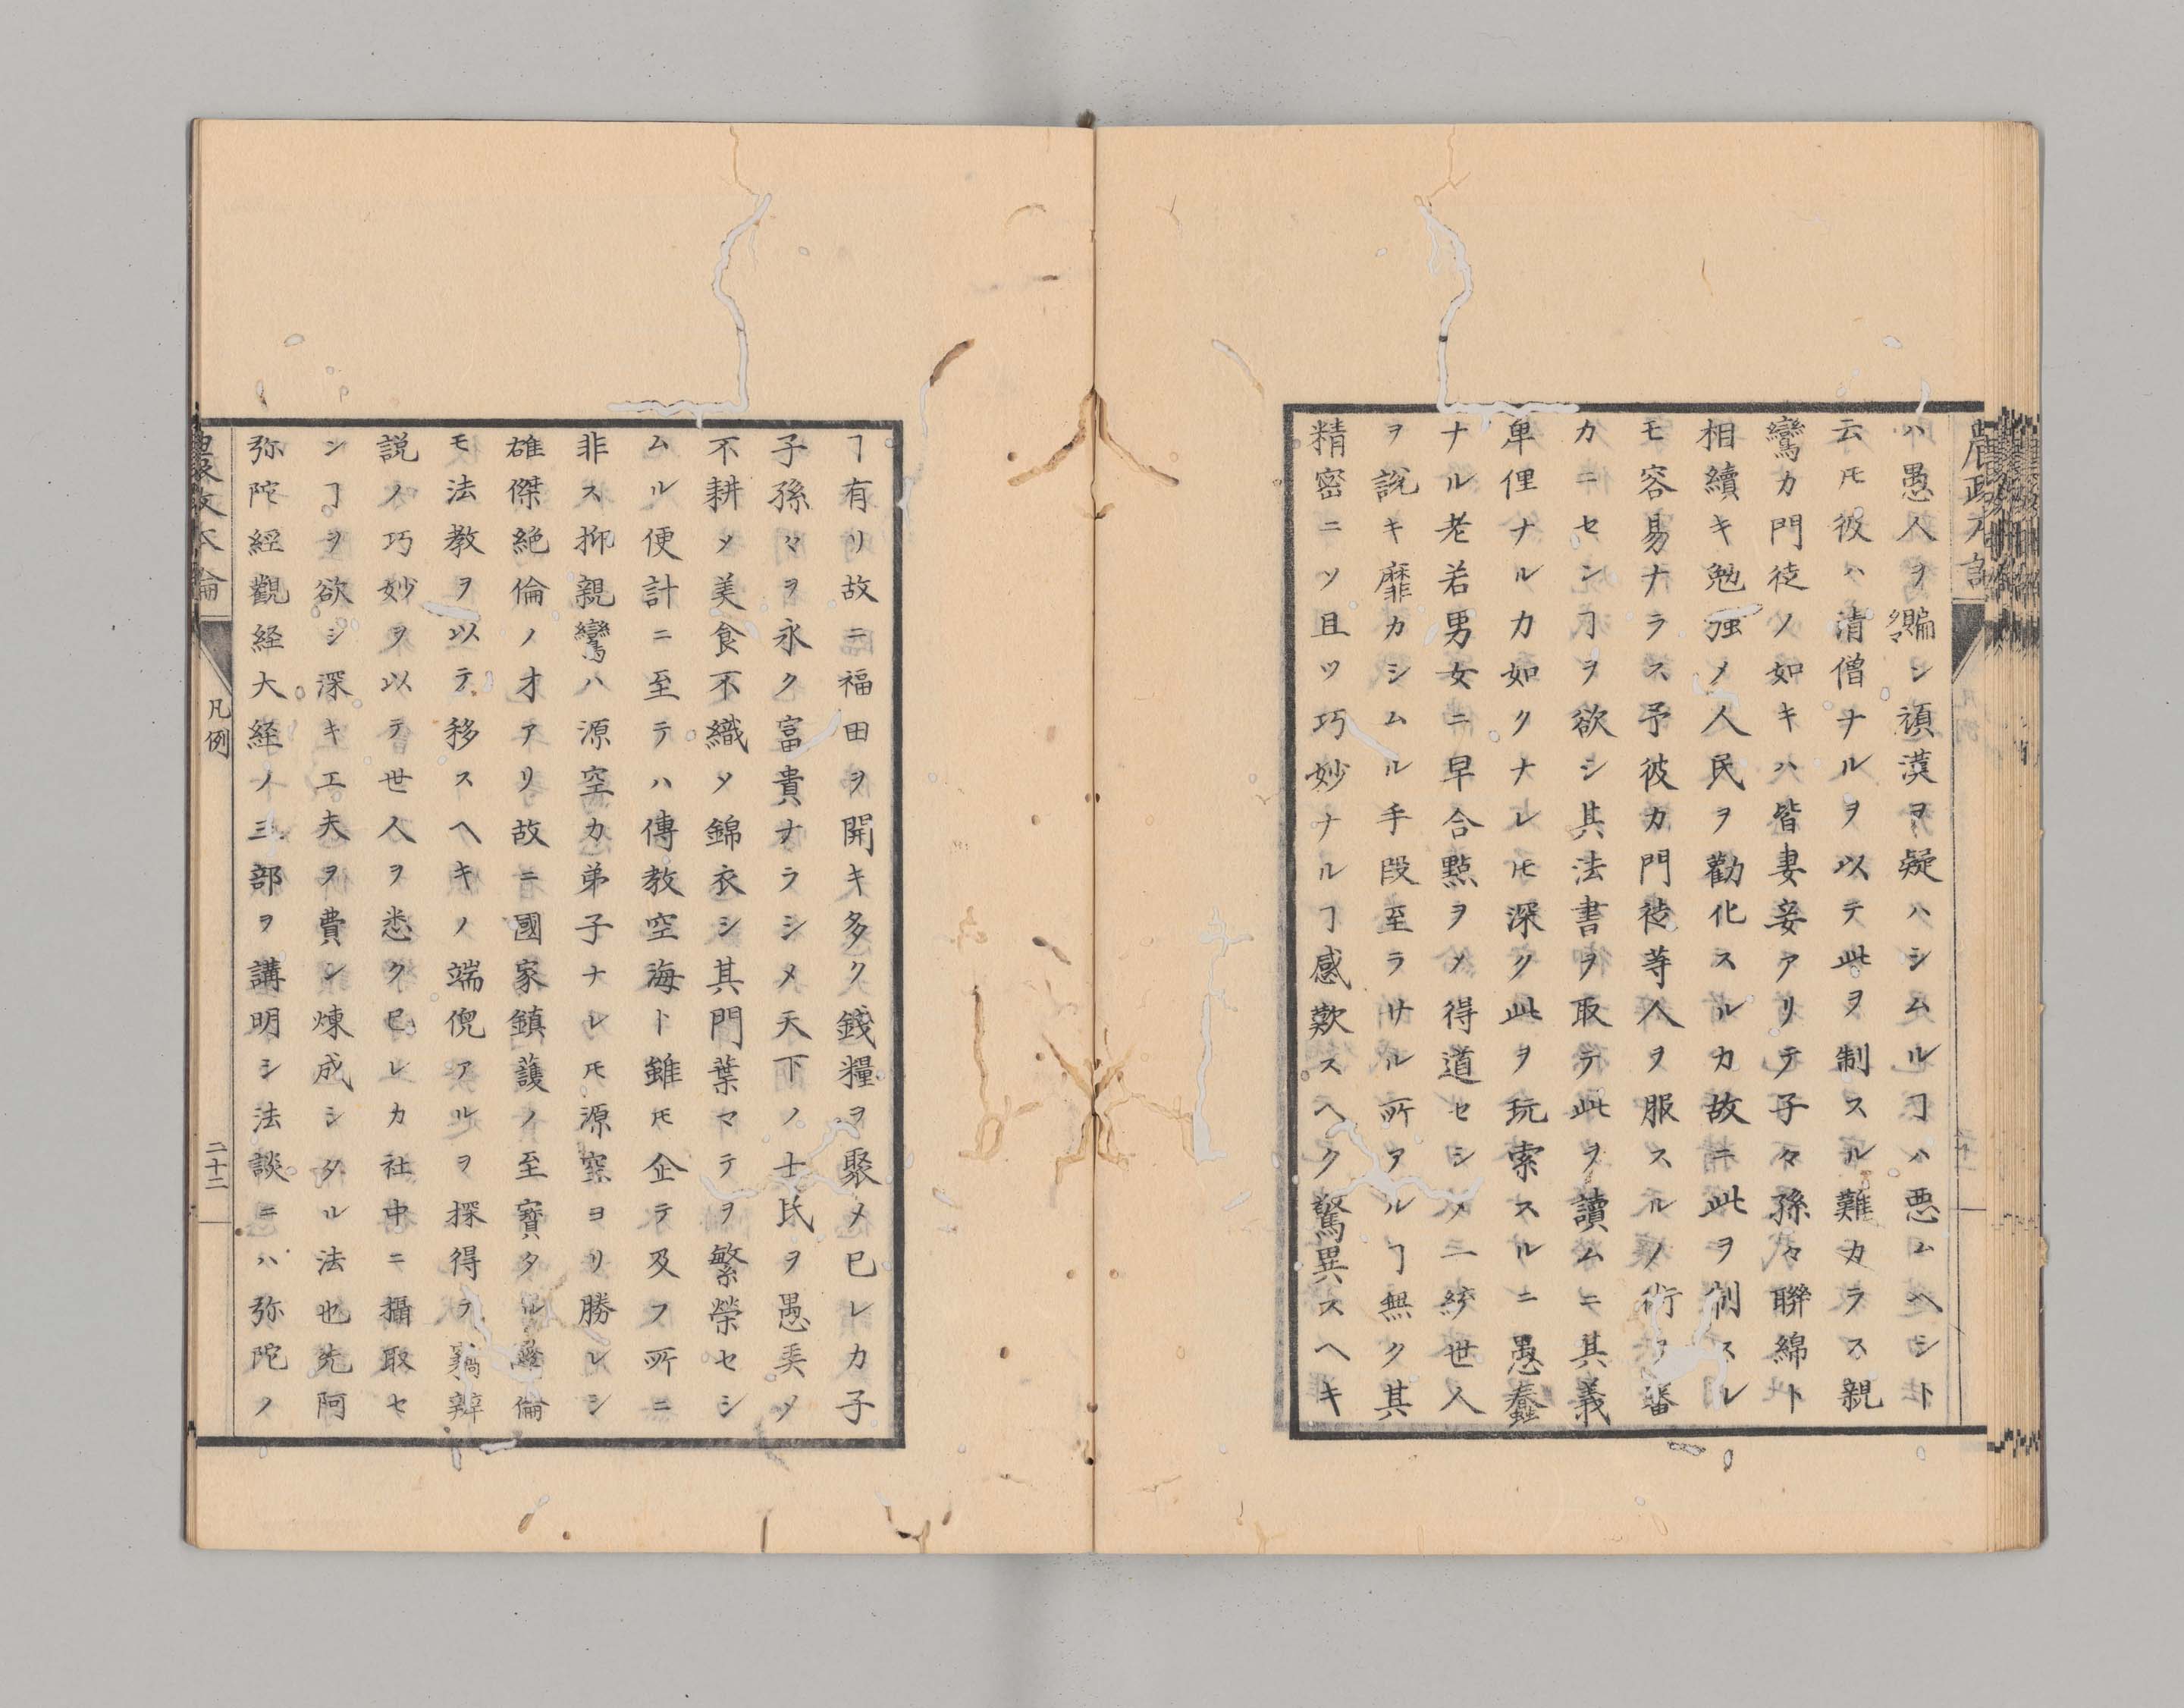 ハ愚人ヲ騙シ頑漢ヲ疑ハシムルヿハ悪ムヘシト
云𪜈彼ハ清僧ナルヲ以テ此ヲ制スル難カラス親
鸞カ門徒ノ如キハ皆妻妾アリテ子々孫々聯綿ト
相續キ勉强メ人民ヲ勸化スルカ故ニ此ヲ制スル
モ容易ナラス予彼カ門徒等人ヲ服スルノ術ヲ審
カニセンヿヲ欲シ其法書ヲ取テ此ヲ讀ムニ其義
卑俚ナルカ如クナレ𪜈深ク此ヲ玩索スルニ愚蠢
ナル老若男女ニ早合點ヲメ得道セシメ二綂世人
ヲ說キ靡カシムル手段至ラサル所アルヿ無ク其
精密ニソ且ツ巧妙ナルヿ感歎スヘク驚異スヘキ
ヿ有リ故ニ福田ヲ開キ多ク錢糧ヲ聚メ已レカ子
子孫々ヲ永ク富貴ナラシメ天下ノ士民ヲ愚弄メ
不耕メ美食不織メ錦衣シ其門葉マテヲ繁榮セシ
ムル便計ニ至テハ傳教空海ト雖𪜈企テ及フ所ニ
非ス抑親鸞ハ源空カ弟子ナレ𪜈源空ヨリ勝レシ
雄傑絶倫ノ才アリ故ニ國家鎮護ノ至寶タル
倫
モ法教ヲ以テ移スヘキノ端倪アルヲ探得テ竊辨
説ノ巧妙ヲ以テ世人ヲ悉ク已レカ社中ニ攝取セ
ンヿヲ欲シ深キ工夫ヲ費シ煉成シタル法也先阿
弥陀經觀経大経ノ三部ヲ講明シ法談ニハ弥陀ノ
凡例
二十二